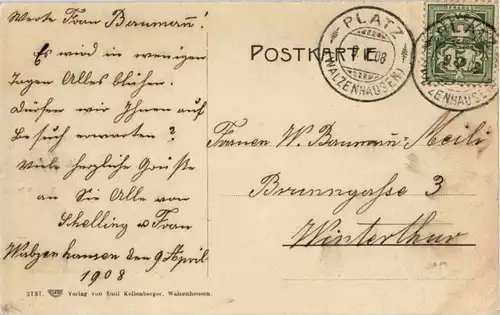 Werte Frau Baumann!
Es wird in wenigen
Tagen Alles blühen.
Dürfen wir Ihnen auf
Besuch erwarten?
Viele herzliche Grüsse
an Sie Alle von
Schelling u Frau
Walzenhausen den 9 April
1908
3757. Verlag von Emil Kellenberger, Walzenhausen.
POSTKARTE
PLATZ
(WALZENHAUSEN)
Frauen W. Baumann-Meili
Brunngasse 3
Winterthur